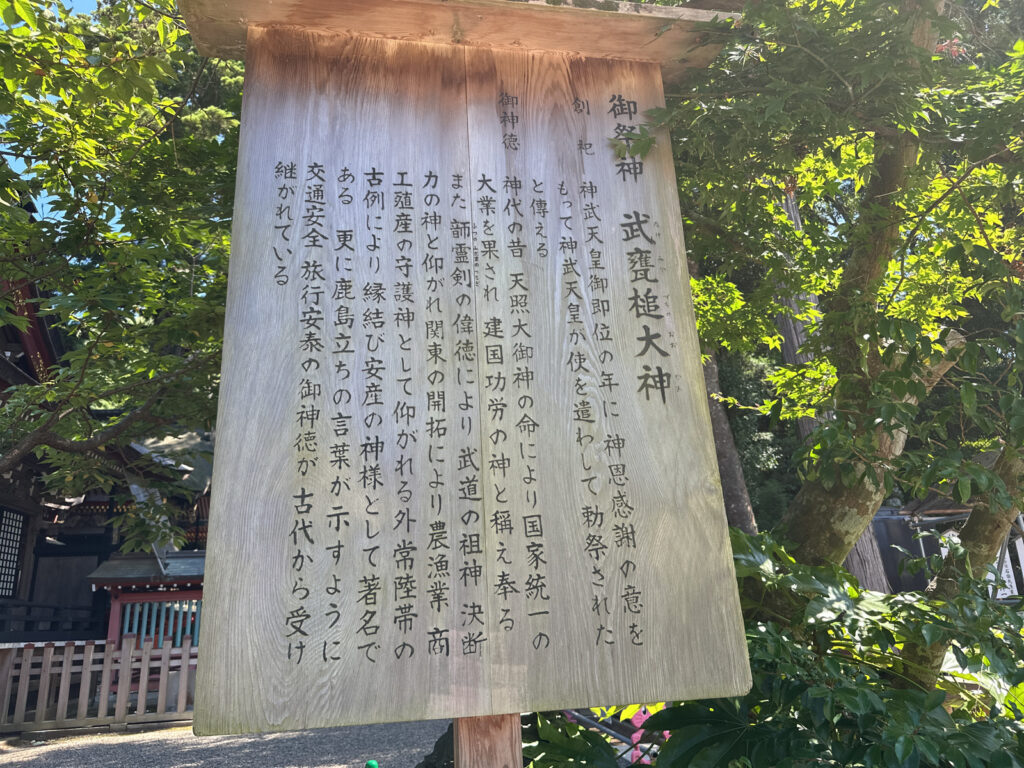 御祭神 武甕槌大神
創祀 神武天皇御即位の年に 神恩感謝の意を
もって神武天皇が使を遣わして勅祭された
と傳える
御神徳 神代の昔 天照大御神の命により国家統一の
大業を果され 建国功労の神と稱え奉る
また 韴霊剣の偉徳により 武道の祖神 決断
力の神と仰がれ関東の開拓により農漁業 商
工殖産の守護神として仰がれる外 常陸帯の
古例により縁結び安産の神様として著名で
ある 更に鹿島立ちの言葉が示すように
交通安全 旅行安泰の御神徳が 古代から受け
継がれている